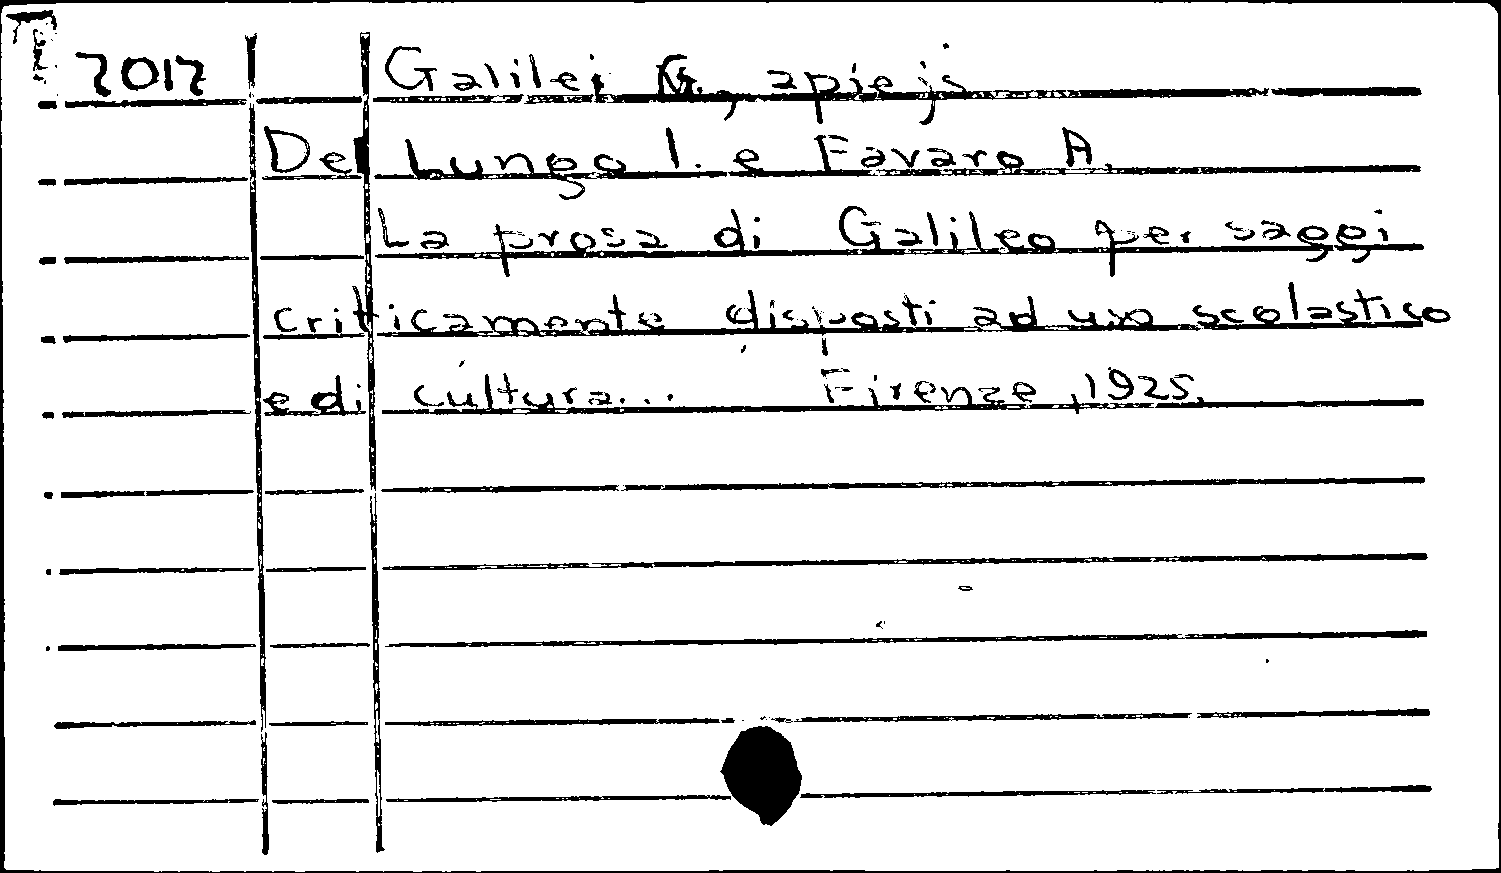 2012 Galilei G., apie jį
Del Lungo I. e Favaro A.
La prosa di Galileo per saggi
criticamente disposti ad uso scolastico
e di cultura... Firenze, 1925.